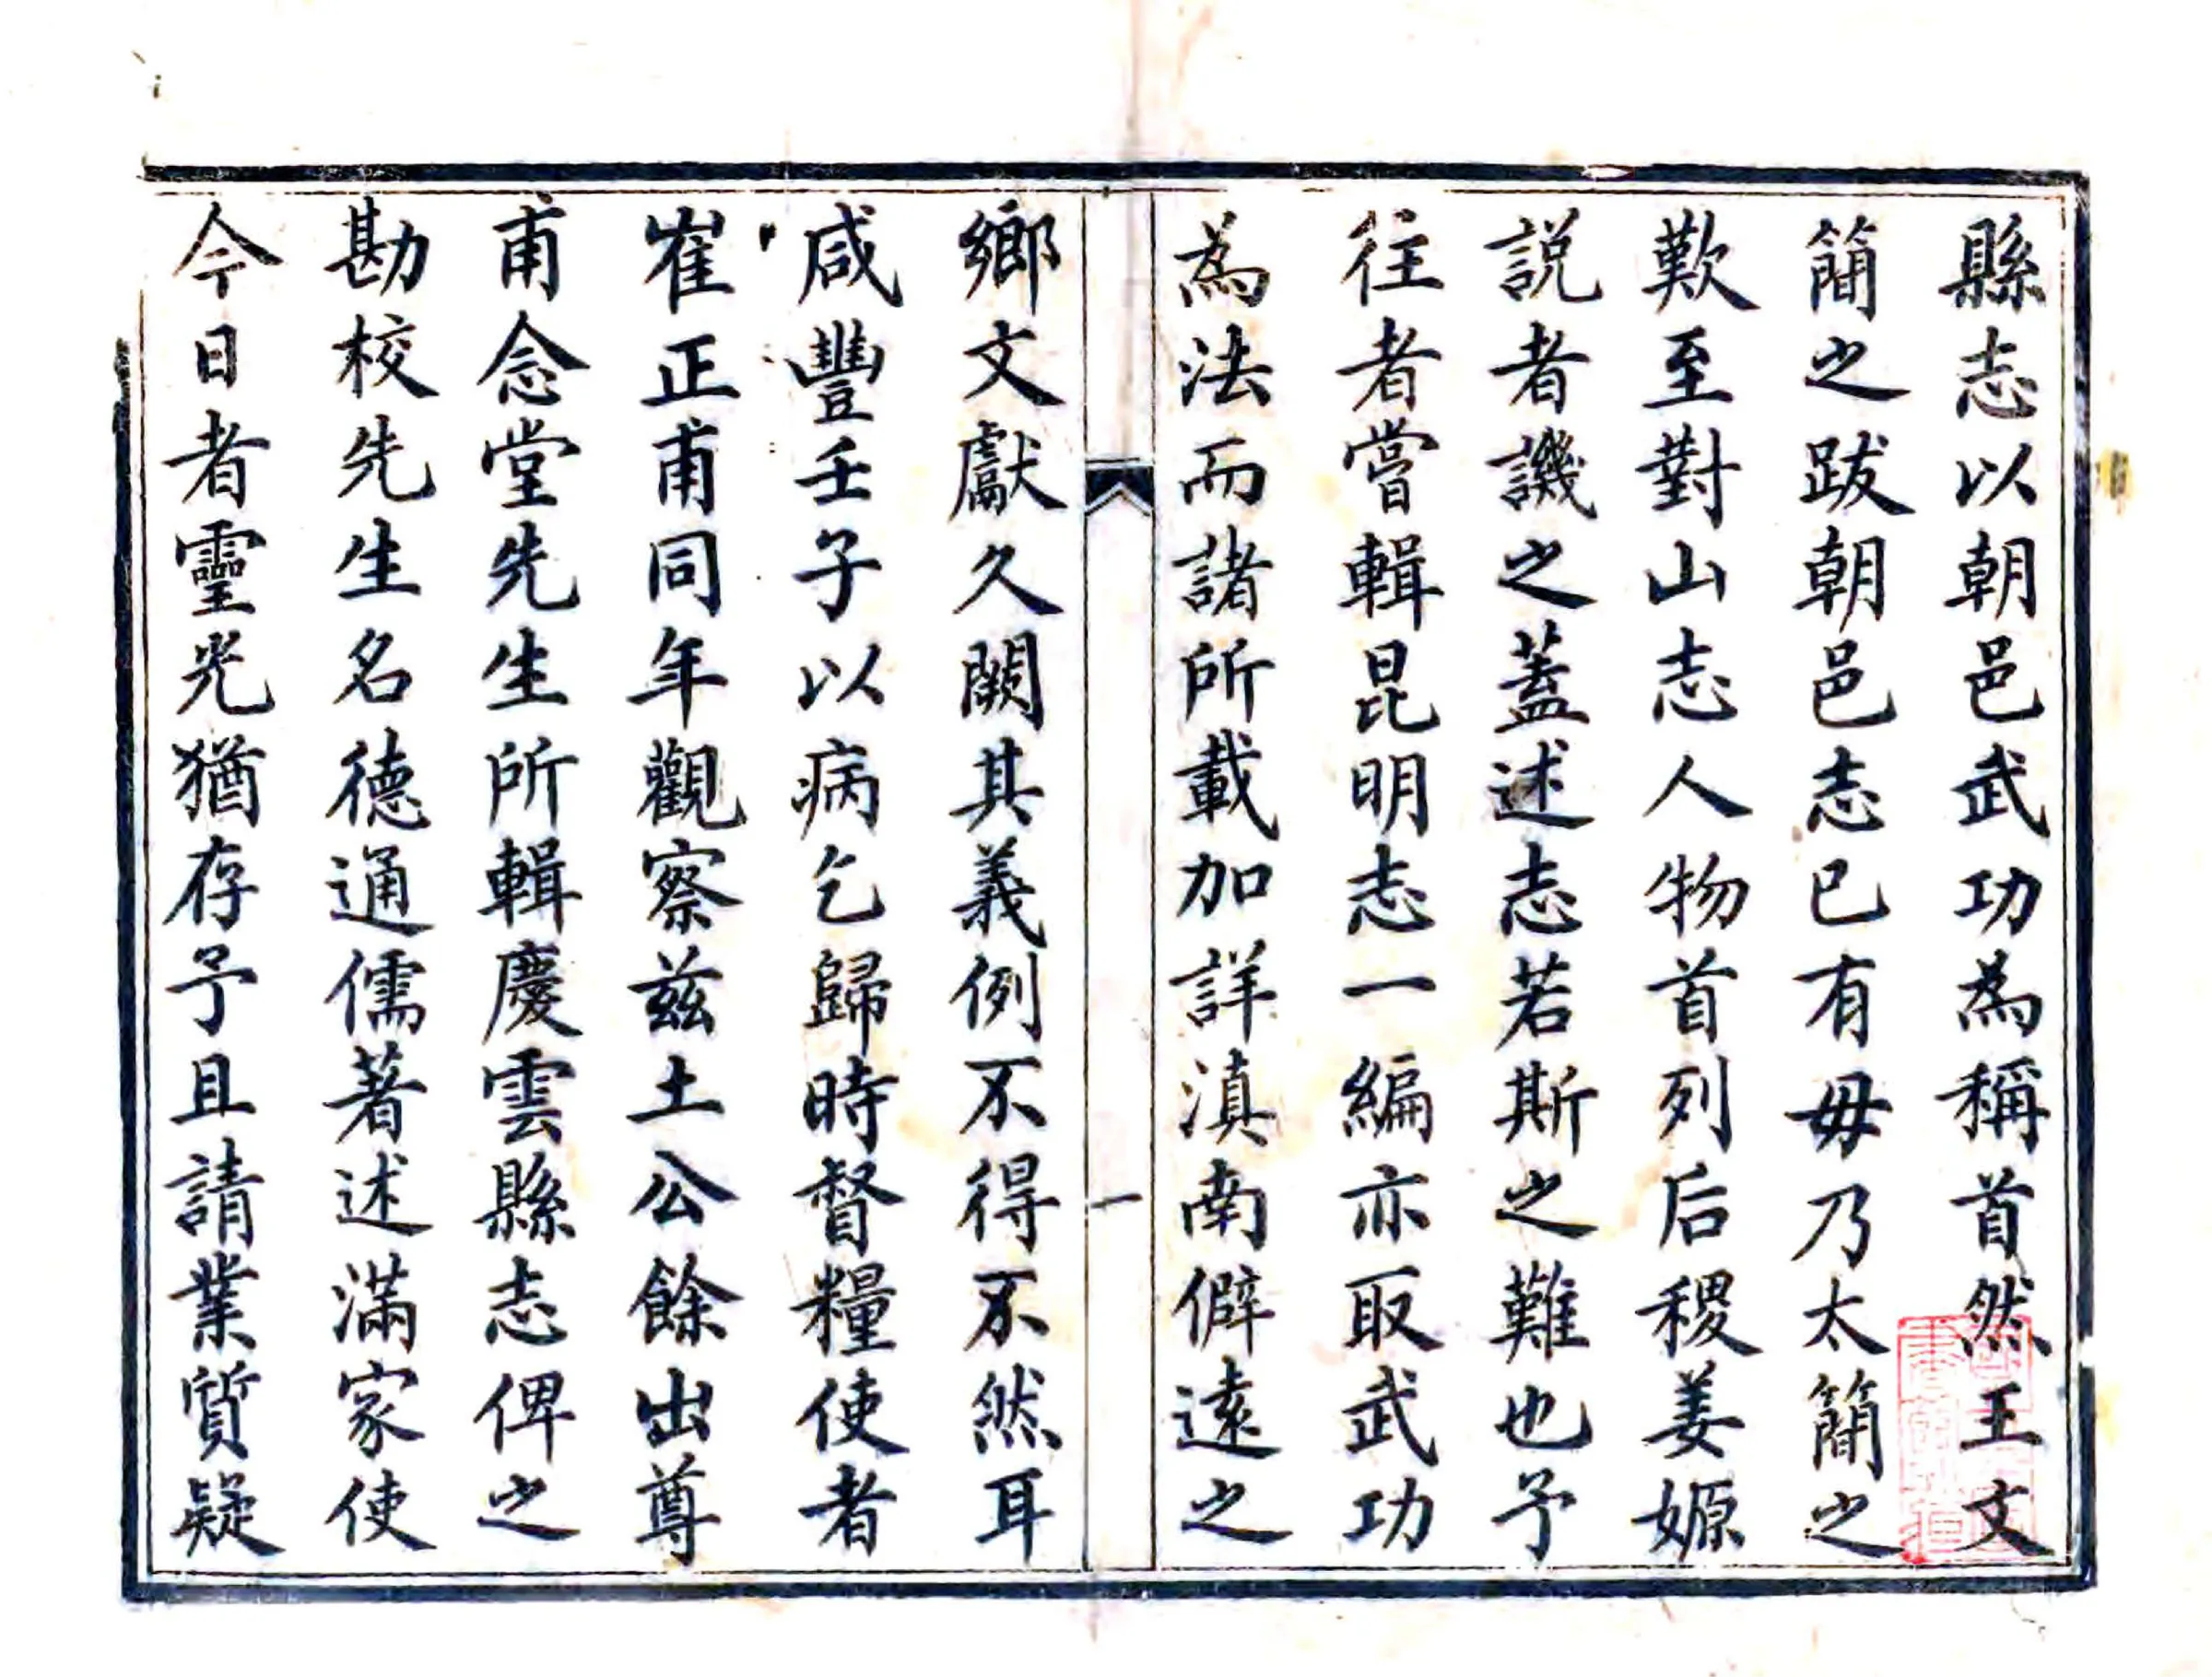 縣志以朝邑武功為稱首然王文
簡之跋朝邑志已有毋乃太簡之
歎至對山志人物首列后稷姜嫄
説者譏之蓋述志若斯之難也予
往者嘗輯昆明志一編亦取武功
為法而諸所載加詳滇南僻遠之
一
鄉文獻久闕其義例不得不然耳
咸豐壬子以病乞歸時督糧使者
崔正甫同年觀察兹土公餘出尊
甫念堂先生所輯慶雲縣志俾之
勘校先生名德通儒著述滿家使
今日者靈光猶存予且請業質疑